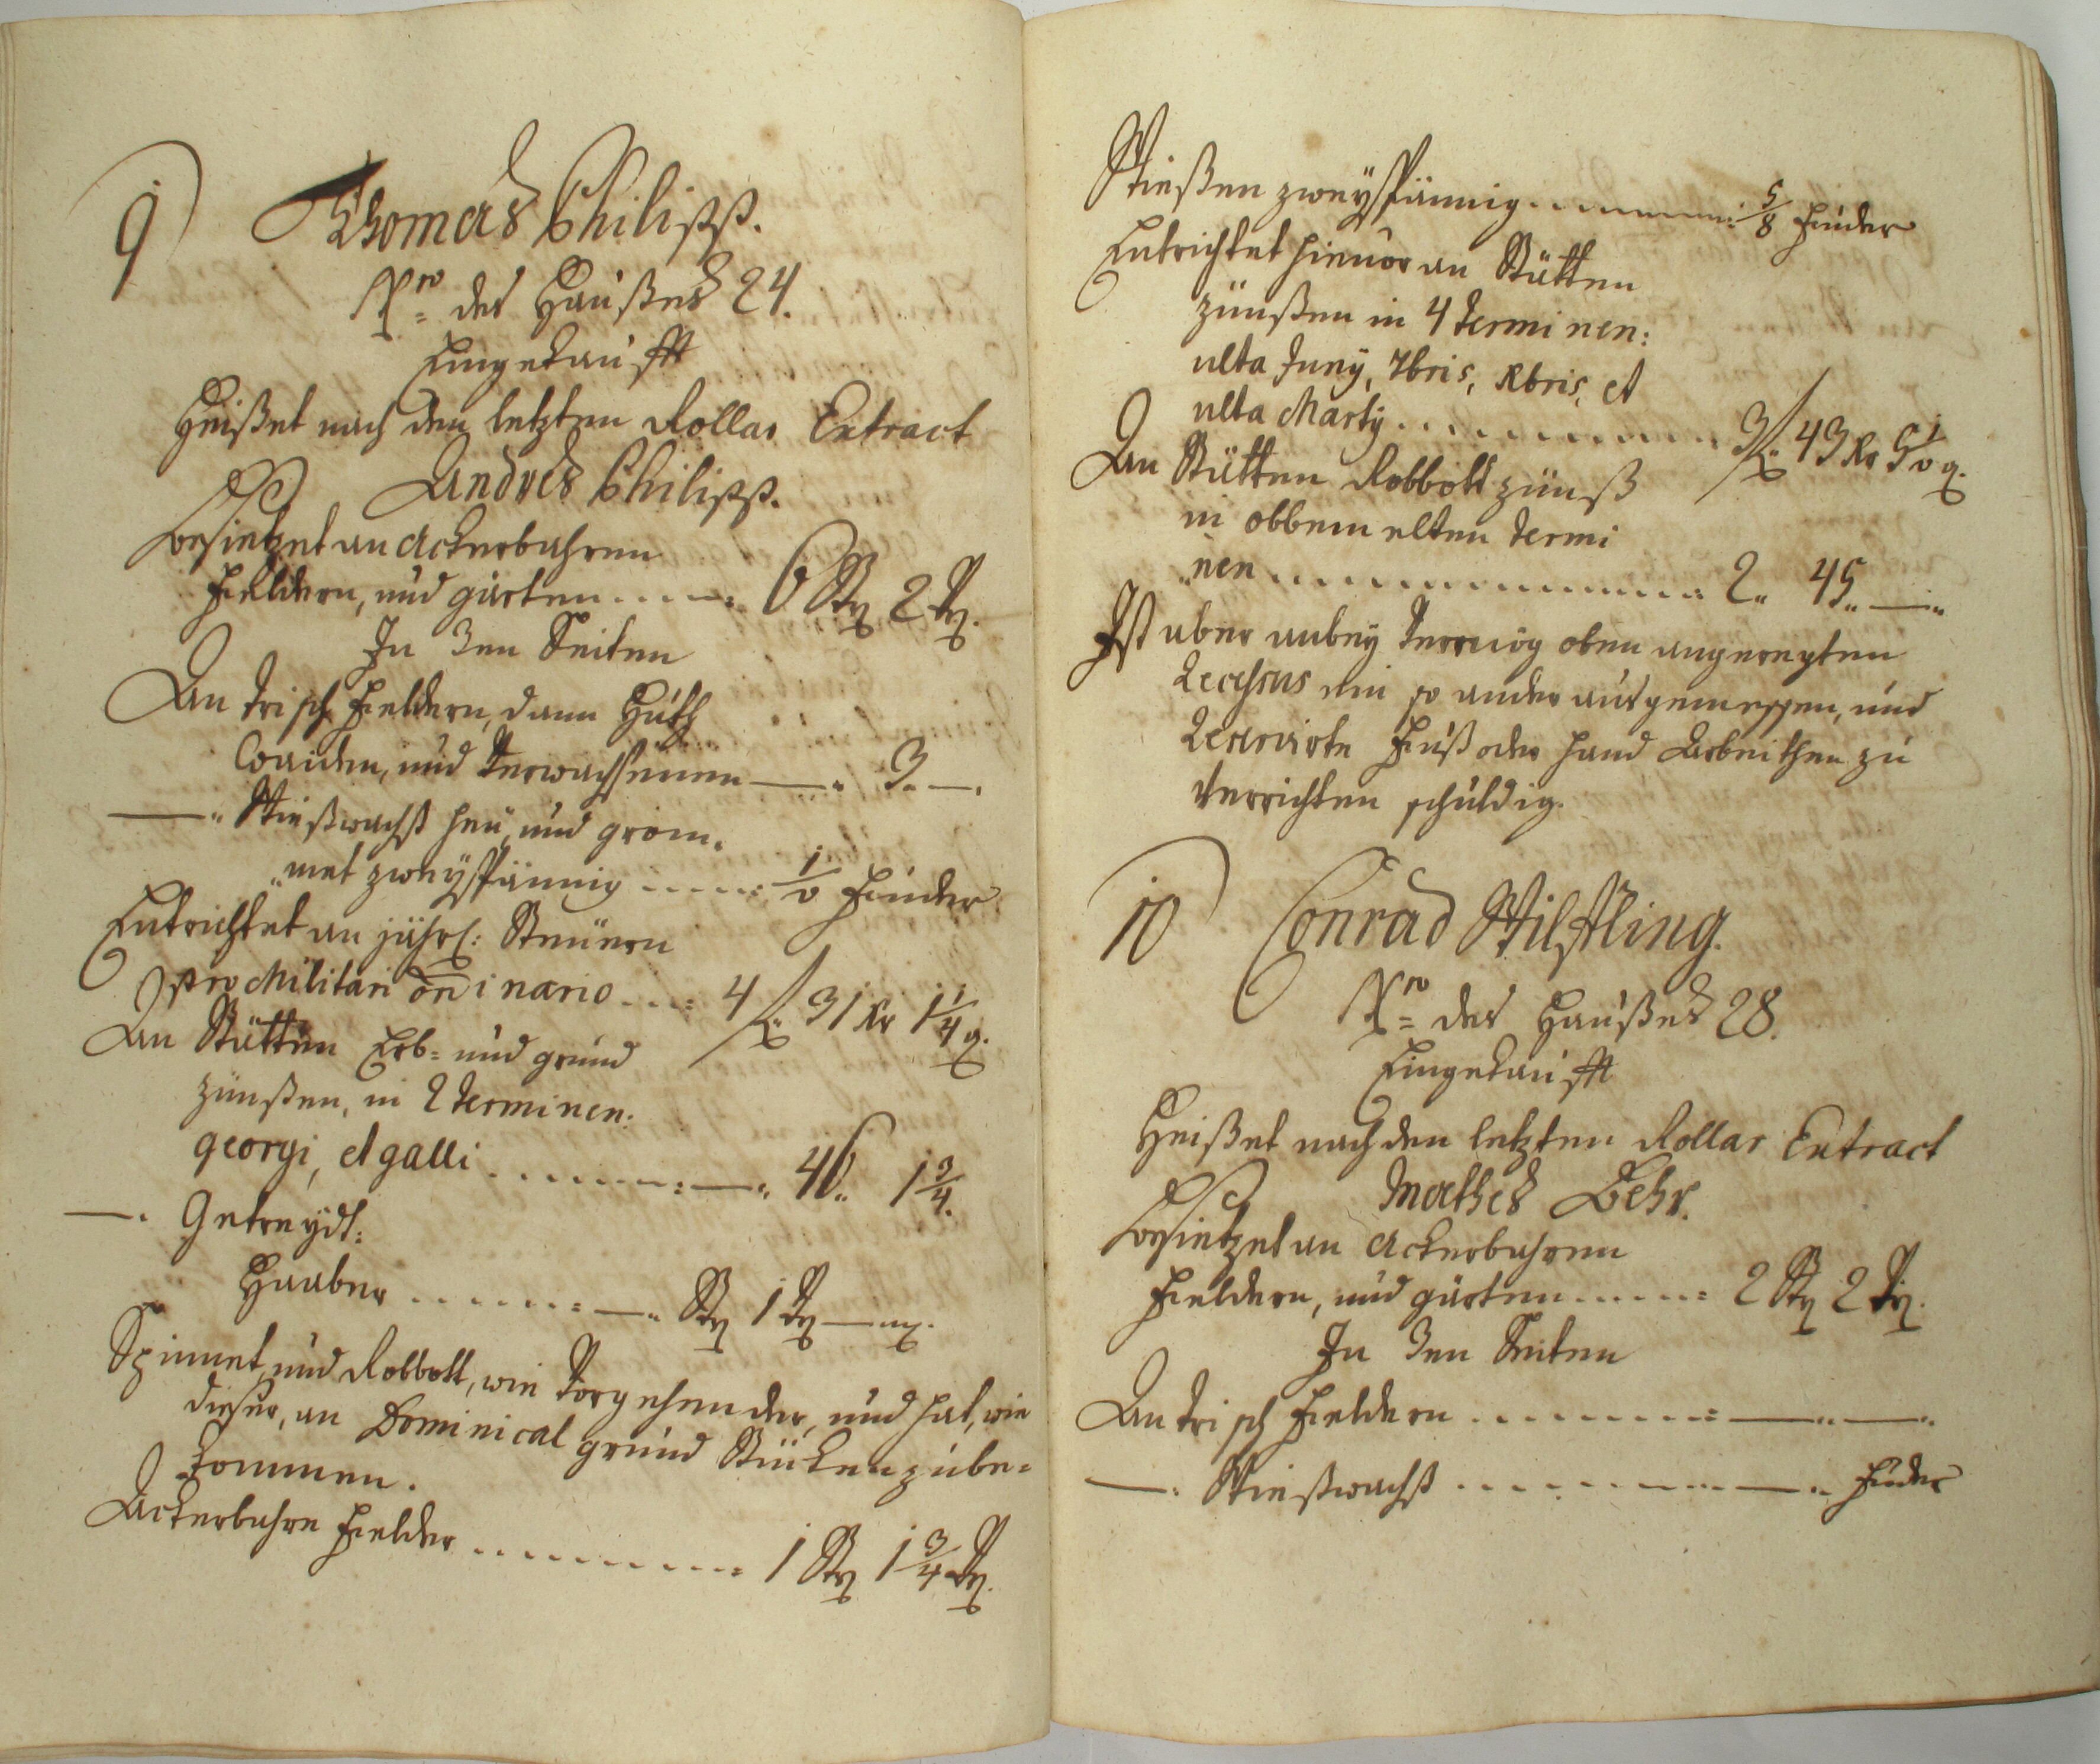 9 Thomas Philipp.
Nro des Haußes 24.
Eingekaufft
Heißet nach den letzten Rollar Extract
Andres Philipp.
Besietzet an Ackerbahren
Fieldern, und gärten ...... 6 Str 2 Vrt.
In 3en Seiten
An Trisch Fieldern, dann Huth
Waiden, und Verwachsenen —" 3 —.
—" Wießwachs heü, und grom„
„met zweyspännig ...... 1/8 Fuder
Entrichtet an jährl: Steüern
pro Militari ordinario .... 4 f 31 Kr 1 1/4 d.
An Stätten Erb- und grund
zünßen, in 2 Terminen:
georgi, et galli ........ —" 46" 1 3/4.
—. Getreydt:
Haaber ........ —" Str 1 Vrt — m.
Spinnet, und Robbott, wie Vorgehender, und hat, wie
dießer, an Dominical grund Stücken zu be-
kommen.
Ackerbahre Fielder .......... 1 Str 1 3/4 Vrt.
Wießen zweyspännig .......... 5/8 Fuder
Entrichtet hievor an Stätten
zünßen in 4 Terminen:
ulta Juny, 7bris, Xbris, et
ulta Marty .......... 3 f 43 Kr 5 1/8 d.
An Stätten Robbott zünß
in obbemelten Termi
„nen .............. 2" 45" —"
Ist aber anbey Vermög oben angeregten
Recessus ein so ander ausgemessen, und
Reservirte Fuß oder Hand Arbeithen zu
verrichten schuldig.
10 Conrad Wilfling.
Nro des Haußes 28.
Eingekaufft
Heißet nach den letzten Rollar Extract
Mathes Behr.
Besietzet an Ackerbahren
Fieldern, und gärten ...... 2 Str 2 Vrt.
In 3en Seiten
An Trisch Fieldern ........ —" —"
—. Wießwachs .......... —" Fuder